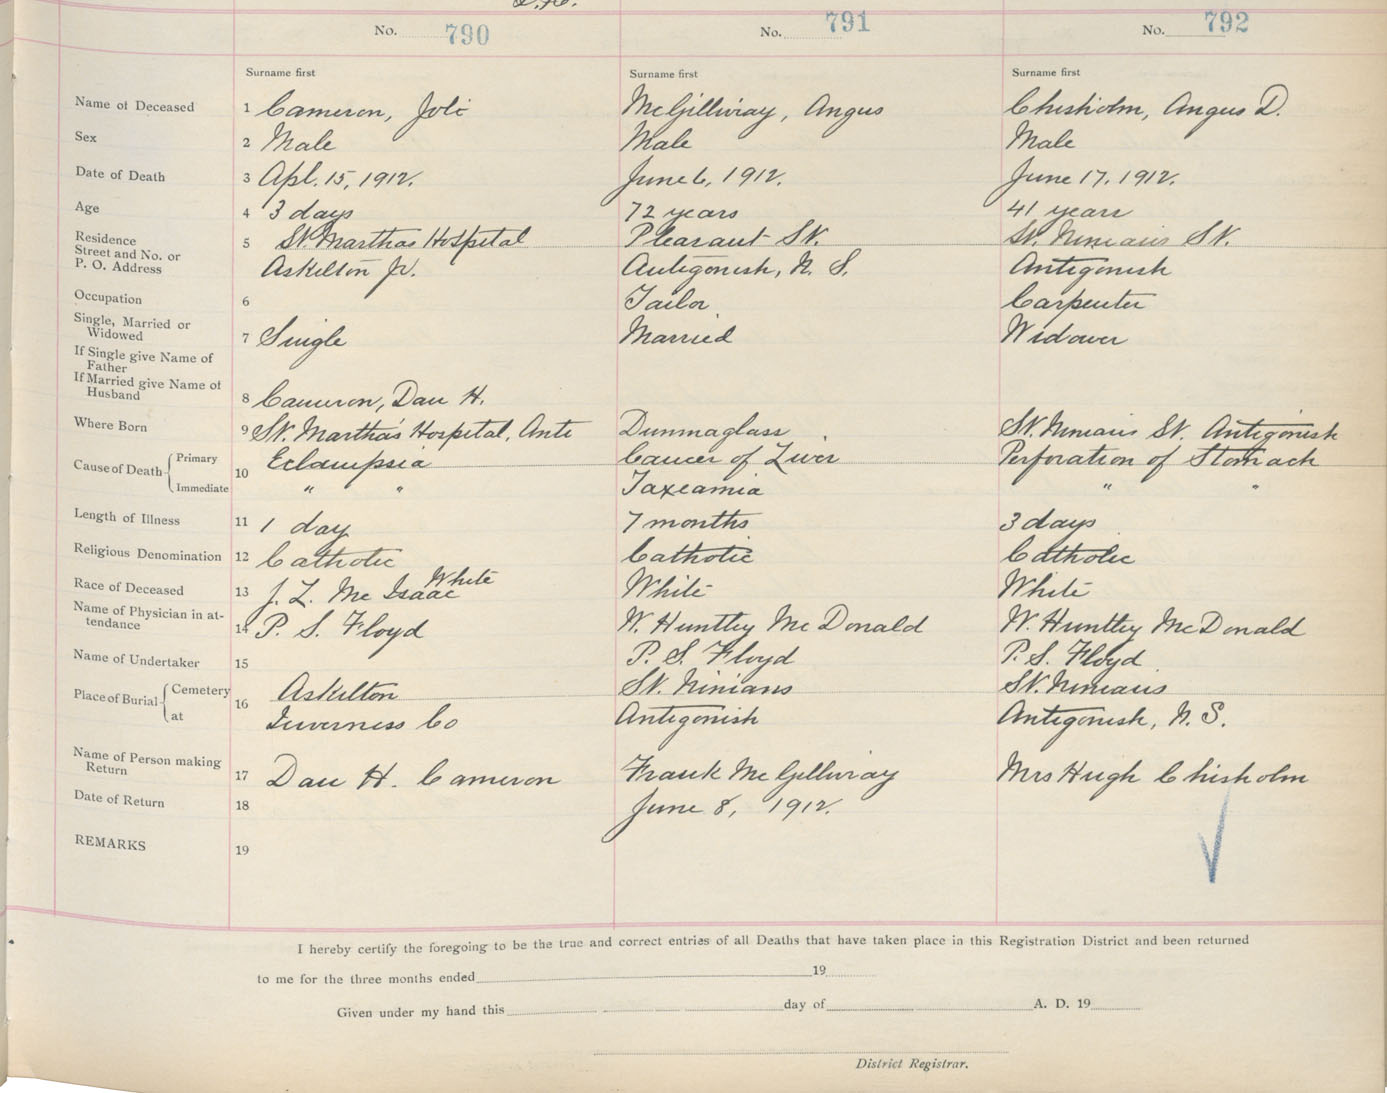 No. 790 No. 791 No. 792
Surname first Surname first Surname first
Name of Deceased 1 Cameron, McGillivray, Angus Chisholm, Angus D.
Sex 2 Male Male Male
Date of Death 3 Apl. 15, 1912. June 6, 1912. June 17, 1912.
Age 4 3 days 72 years 41 years
Residence 5 St. Marthas Hospital Pleasant St. St. Ninians St.
Street and No. or
P. O. Address Askilton Antigonish, N. S. Antigonish
Occupation 6 Tailor Carpenter
Single, Married or
Widowed 7 Single Married Widower
If Single give Name of
Father
If Married give Name of
Husband 8 Cameron, Dan H.
Where Born 9 St. Martha's Hospital, Anti Dunmaglass St. Ninians St. Antigonish
Cause of Death Primary 10 Eclampsia Cancer of Liver Perforation of Stomach
Immediate " " Taxeamia " "
Length of Illness 11 1 day 7 months 3 days
Religious Denomination 12 Catholic Catholic Catholic
White
Race of Deceased 13 J. L. Mc Isaac White White
Name of Physician in at-
tendance 14 P. S. Floyd W. Huntley McDonald W. Huntley McDonald
Name of Undertaker 15 P. S. Floyd P. S. Floyd
Place of Burial Cemetery 16 Askilton St. Ninians St. Ninians
at Inverness Co Antigonish Antigonish, N. S.
Name of Person making
Return 17 Dan H. Cameron Frank McGillivray Mrs Hugh Chisholm
Date of Return 18 June 8, 1912.
REMARKS 19
I hereby certify the foregoing to be the true and correct entries of all Deaths that have taken place in this Registration District and been returned
to me for the three months ended 19
Given under my hand this day of A. D. 19
District Registrar.